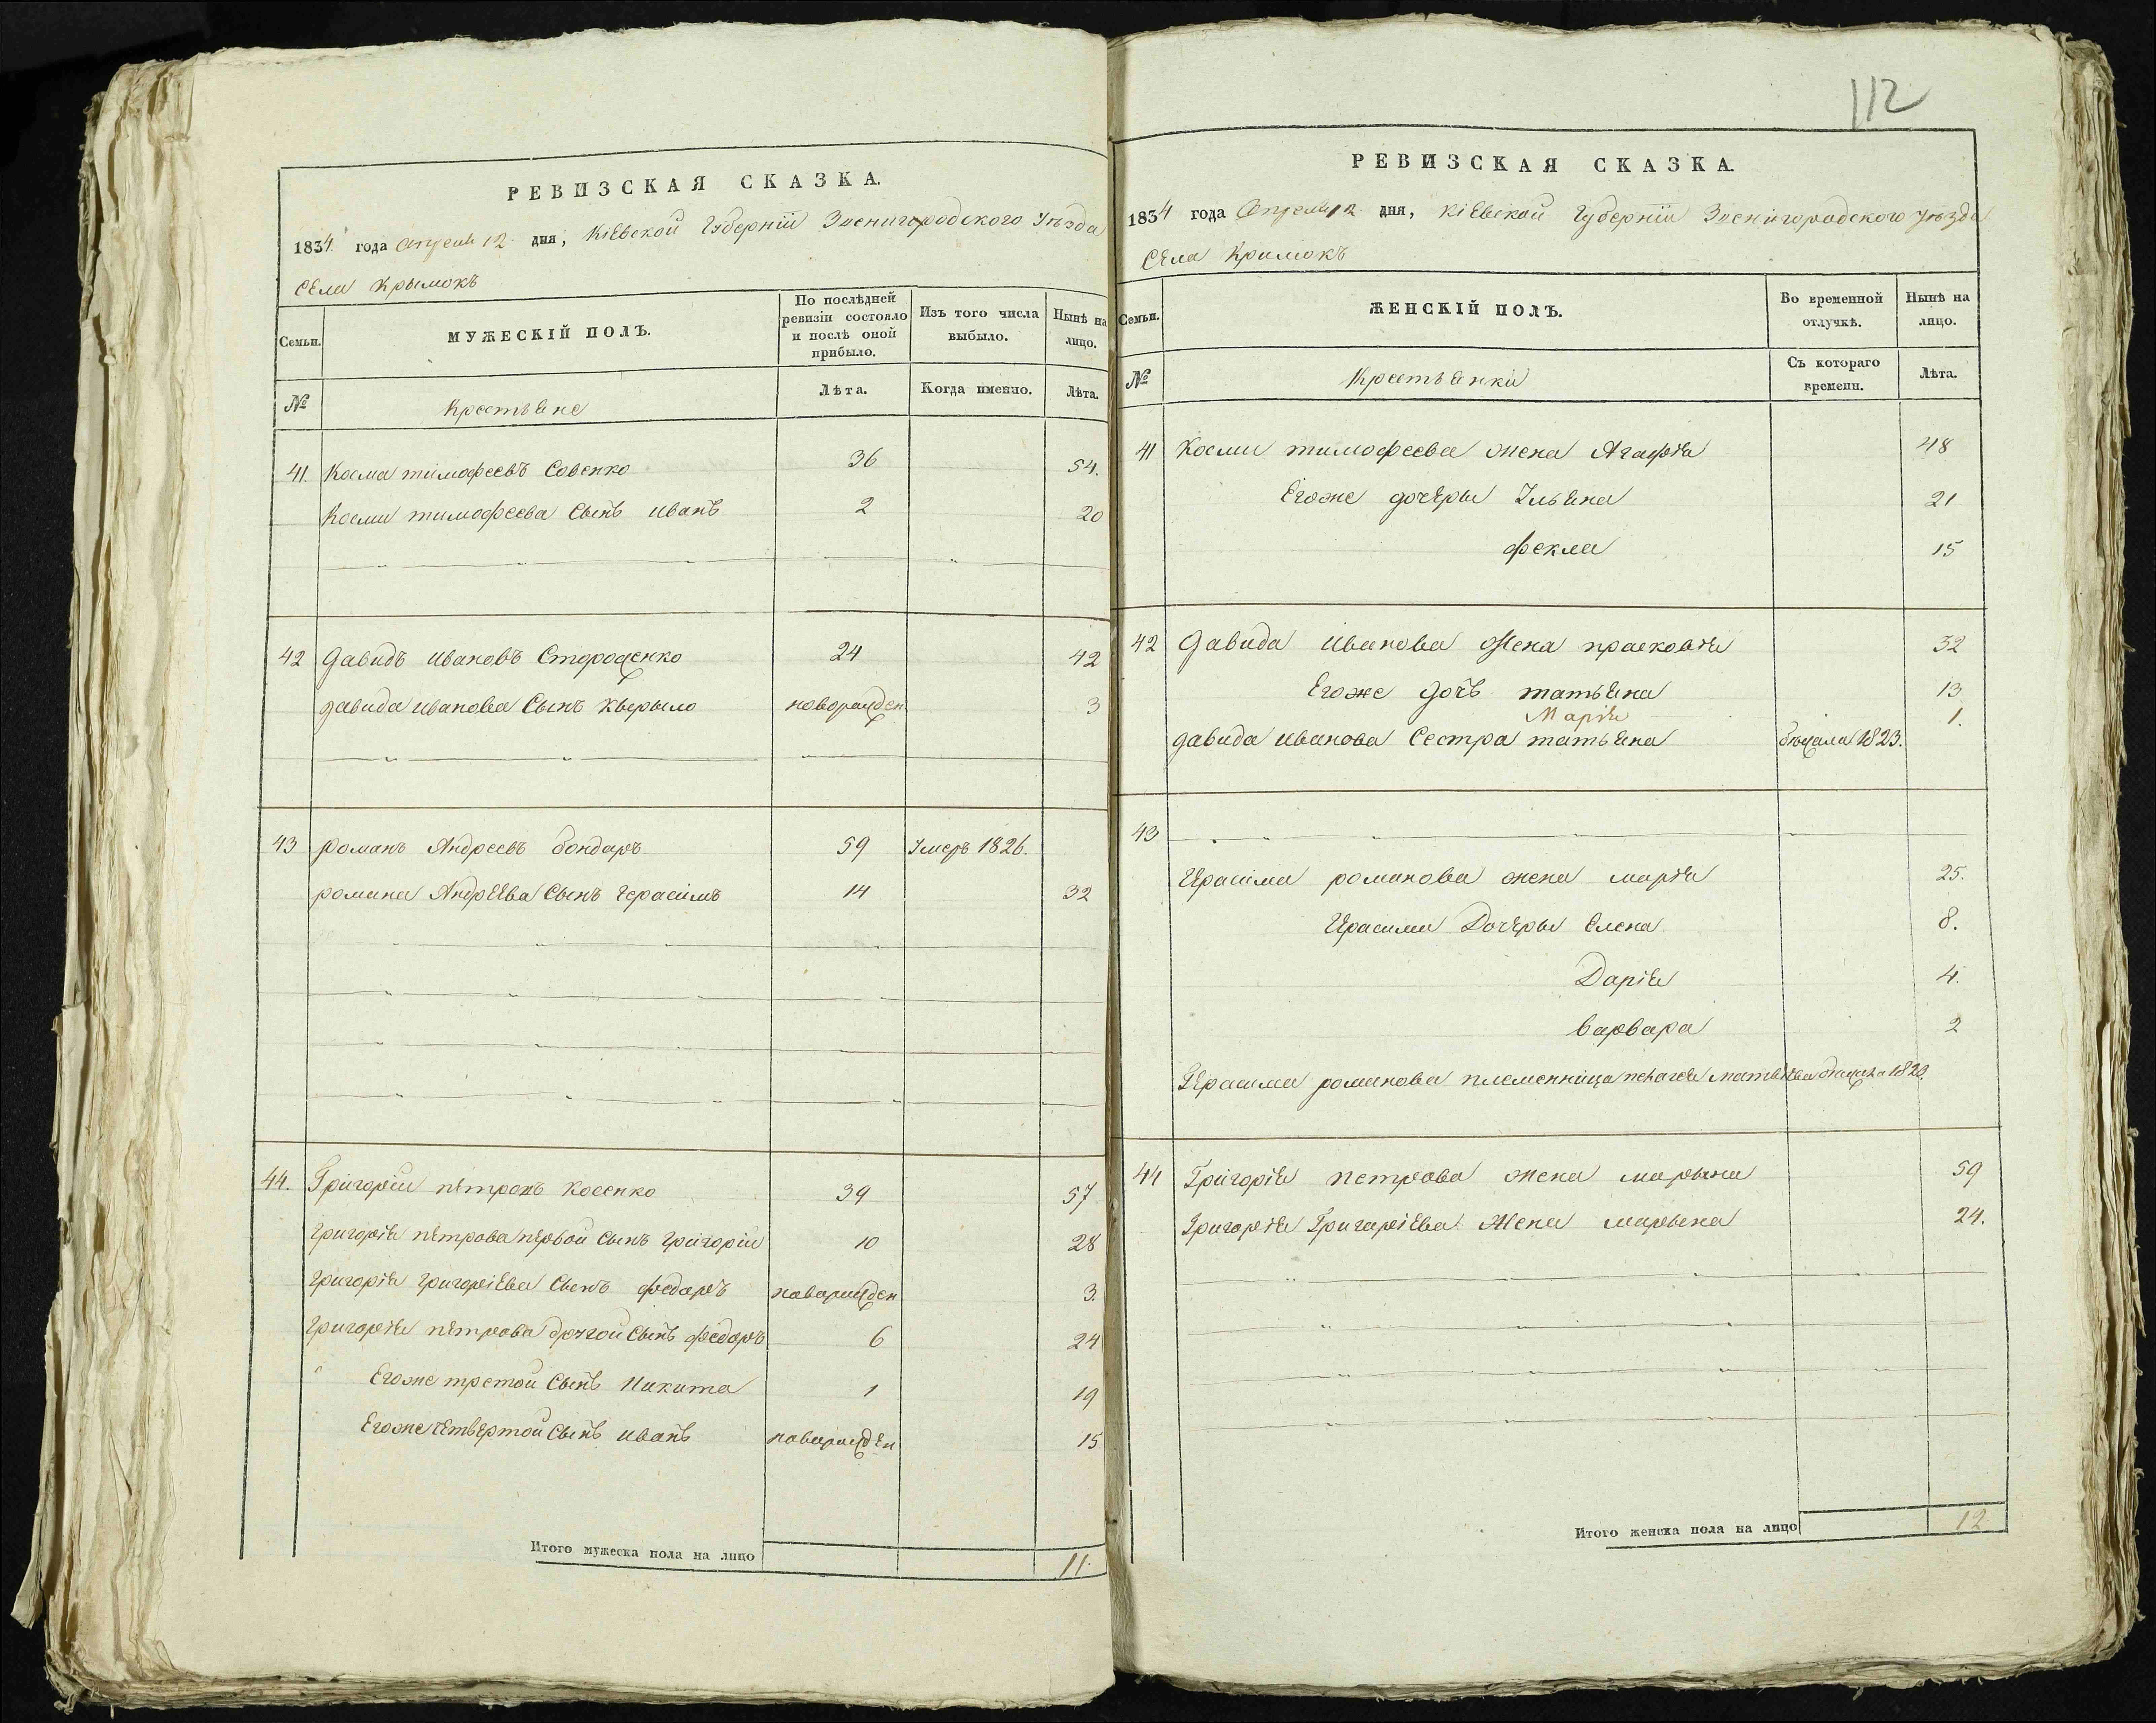 РЕВИЗСКАЯ СКАЗКА.
1834 года Апреля 12 дня, Кіевской Губерніи Звенигородского Уѣзда
Села Крымокъ
Семьи.
МУЖЕСКІЙ ПОЛЪ.
По послѣдней ревизіи состояло и послѣ оной прибыло.
Изъ того числа выбыло.
Нынѣ на лицо.
№
Крестьяне
Лѣта.
Когда имевно.
Лѣта.
41. Косма тимофеевъ Совенко 36 54.
Косми тимофеева Сынъ иванъ 2 20
42 Давидъ ивановъ Стороженко 24 42
давида иванова Сынъ Кьерыло новорожден 3
43 романъ Андреевъ бондаръ 59 Умеръ 1826.
романа Андреева Сынъ Герасимъ 14 32
44. Григорій петровъ Косенко 39 57
григорія петрова первой Сынъ григорій 10 28
григорія григоріева Сынъ федоръ новорожден 3.
григорія петрова другой Сынъ федоръ 6 24
Егоже третой Сынъ Никита 1 19
Егоже четвертой Сынъ иванъ новорожден 15
Итого мужеска пола на лицо 11.
112
РЕВИЗСКАЯ СКАЗКА.
1834 года Апреля 12 дня, Кіевской Губерніи Звенигородского уѣзда
Села Кримокъ
Семьи.
ЖЕНСКІЙ ПОЛЪ.
Во временной отлучкѣ.
Нынѣ на лицо.
№
Крестьянки
Съ котораго времени.
Лѣта.
41 Косми тимофеева жена Агафія 48
Егоже дочеры Ульяна 21
фекла 15
42 Давида Иванова Жена прасковія 32
Егоже дочъ татьяна 13
Марія 1.
давида иванова Сестра татьяна бежала 1823.
43
Герасима романова жена марія 25.
Герасима Дочеры Елена 8.
Дарія 4.
варвара 2
Герасима романова племенница
44 Григорія петрова жена марына 59
Григорія Григоріева Жена марьена 24.
Итого женска пола на лицо 12